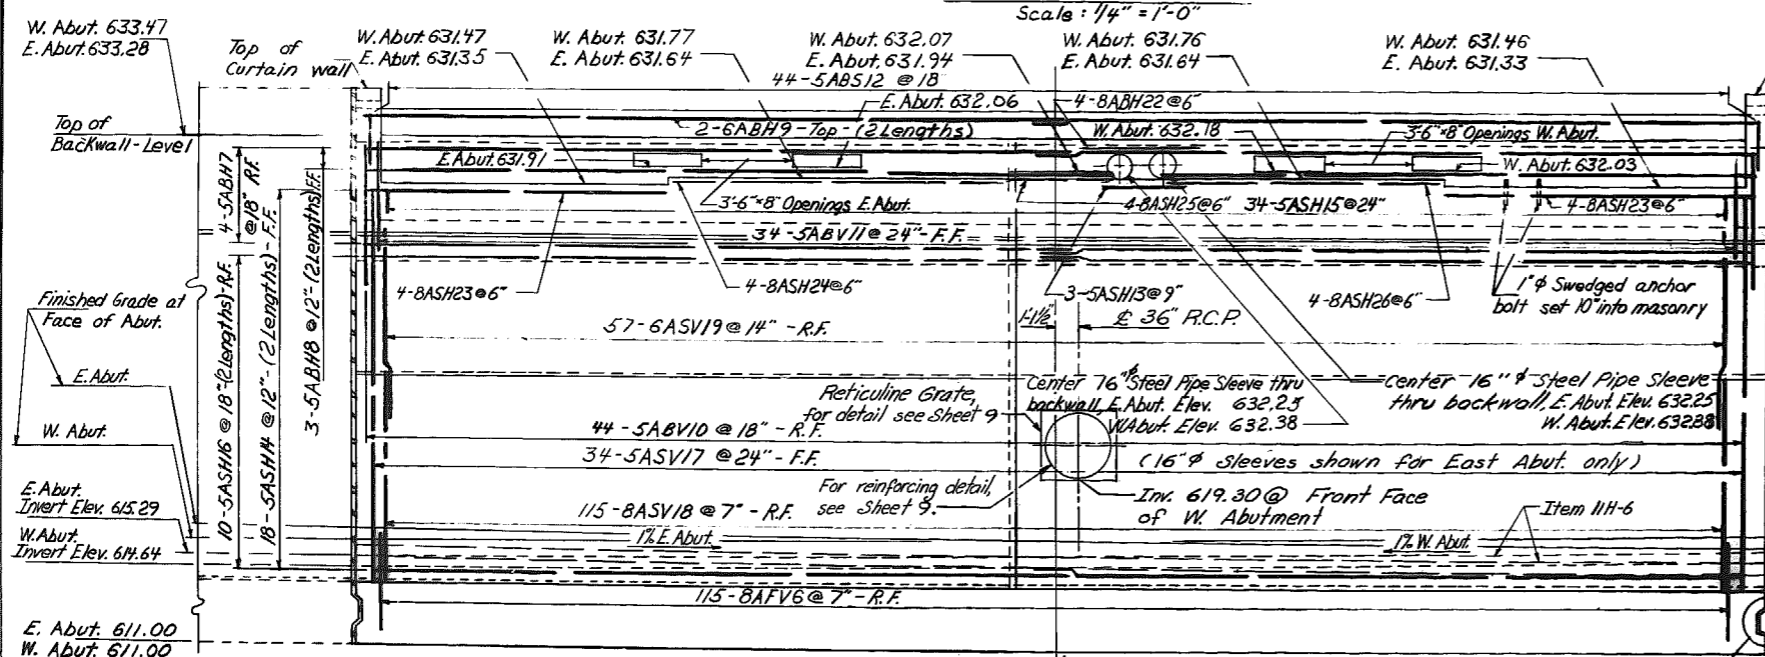 Scale: 1/4" = 1'-0"
W. Abut. 633.47
E. Abut. 633.28
Top of
Curtain wall
W. Abut. 631.47
E. Abut. 631.35
W. Abut. 631.77
E. Abut. 631.64
W. Abut. 632.07
E. Abut. 631.94
W. Abut. 631.76
E. Abut. 631.64
W. Abut. 631.46
E. Abut. 631.33
44-5ABS12 @ 18"
E. Abut. 632.06
4-8ABH22@6"
Top of
Backwall-Level
2-6ABH9-Top-(2 Lengths)
W. Abut. 632.18
3'-6"x8" Openings W. Abut.
E. Abut. 631.91
W. Abut. 632.03
4-5ABH7
@ 18" R.F.
3'-6"x8" Openings E. Abut.
4-8ASH25@6"
34-5ASH15@24"
4-8ASH23@6"
34-5ABV11@24"-F.F.
4-8ASH23@6"
4-8ASH24@6"
3-5ASH13@9"
4-8ASH26@6"
1"φ Swedged anchor
bolt set 10" into masonry
Finished Grade at
Face of Abut.
57-6ASV19@14"-R.F.
1'-1½"
℄ 36" R.C.P.
10-5ASH16 @ 18"(2Lengths)-R.F.
18-5ASH14 @ 12"-(2 Lengths)-F.F.
3-5ABH8 @ 12"(2Lengths)F.F.
E. Abut.
W. Abut.
Reticuline Grate,
for detail see Sheet 9
Center 16"φ Steel Pipe Sleeve thru
backwall, E. Abut. Elev. 632.25
W. Abut. Elev. 632.38
Center 16"φ Steel Pipe Sleeve
thru backwall, E. Abut. Elev. 632.25
W. Abut. Elev. 632.38
44-5ABV10 @ 18"-R.F.
34-5ASV17 @ 24"-F.F.
(16"φ Sleeves shown for East Abut. only)
For reinforcing detail,
see Sheet 9.
Inv. 619.30 @ Front Face
of W. Abutment
E. Abut.
Invert Elev. 615.29
W. Abut.
Invert Elev. 614.64
115-8ASV18 @ 7"-R.F.
Item 11H-6
1% E. Abut.
1% W. Abut.
115-8AFV6@7"-R.F.
E. Abut. 611.00
W. Abut. 611.00